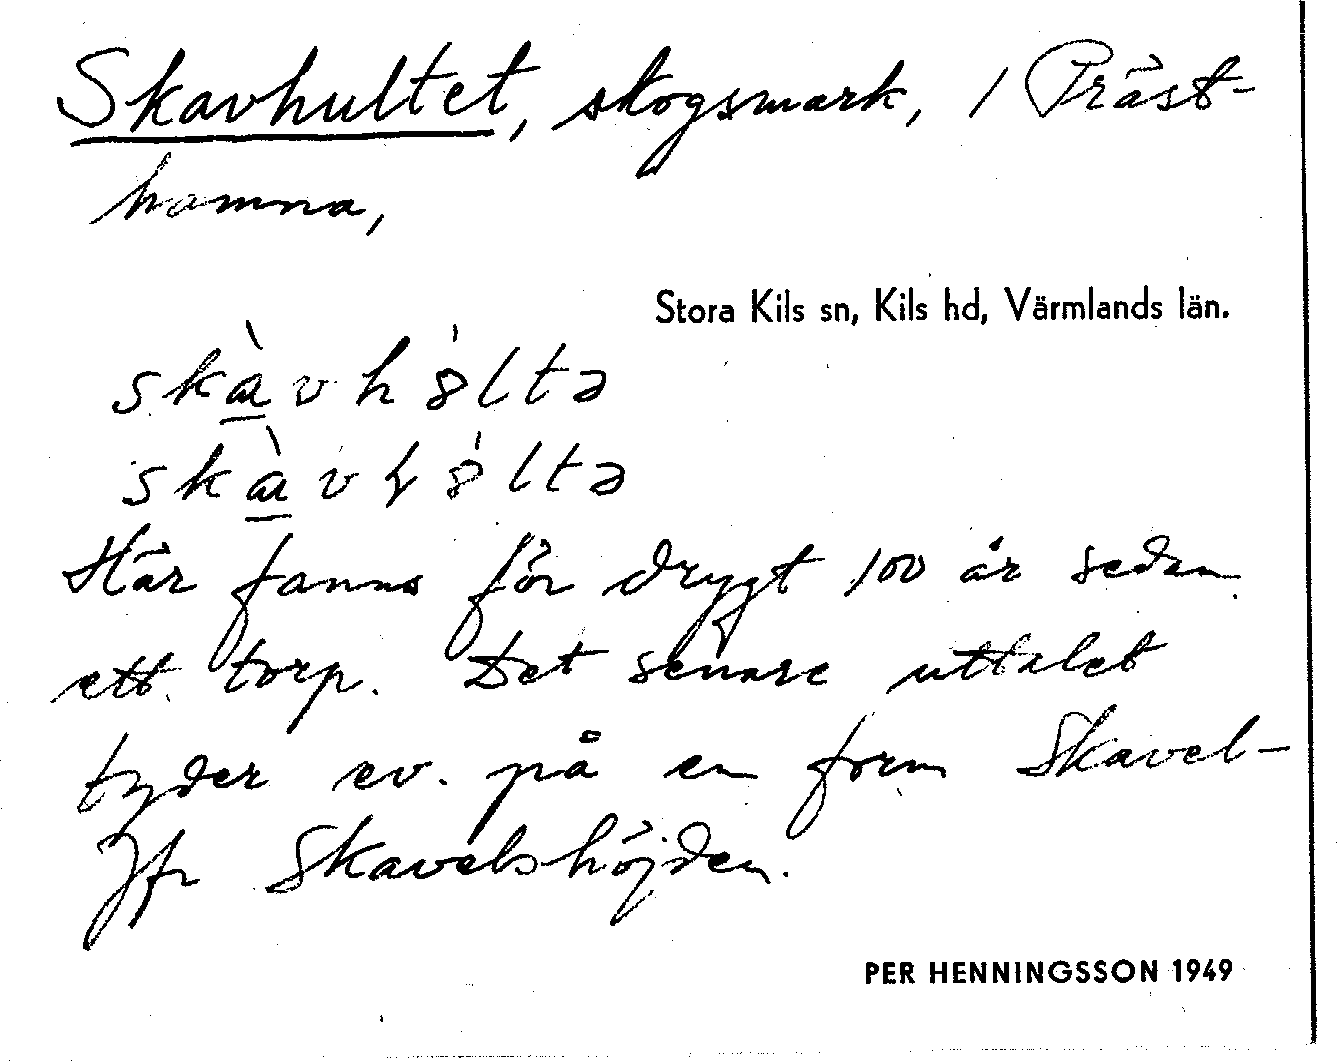 Skavhultet, skogsmark, i Präst-
hamna,
Stora Kils sn, Kils hd, Värmlands län.
Här fanns för drygt 100 år sedan
ett torp. Det senare uttalet
tyder ev. på en form Skavel-
Jfr Skavelshöjden.
PER HENNINGSSON 1949